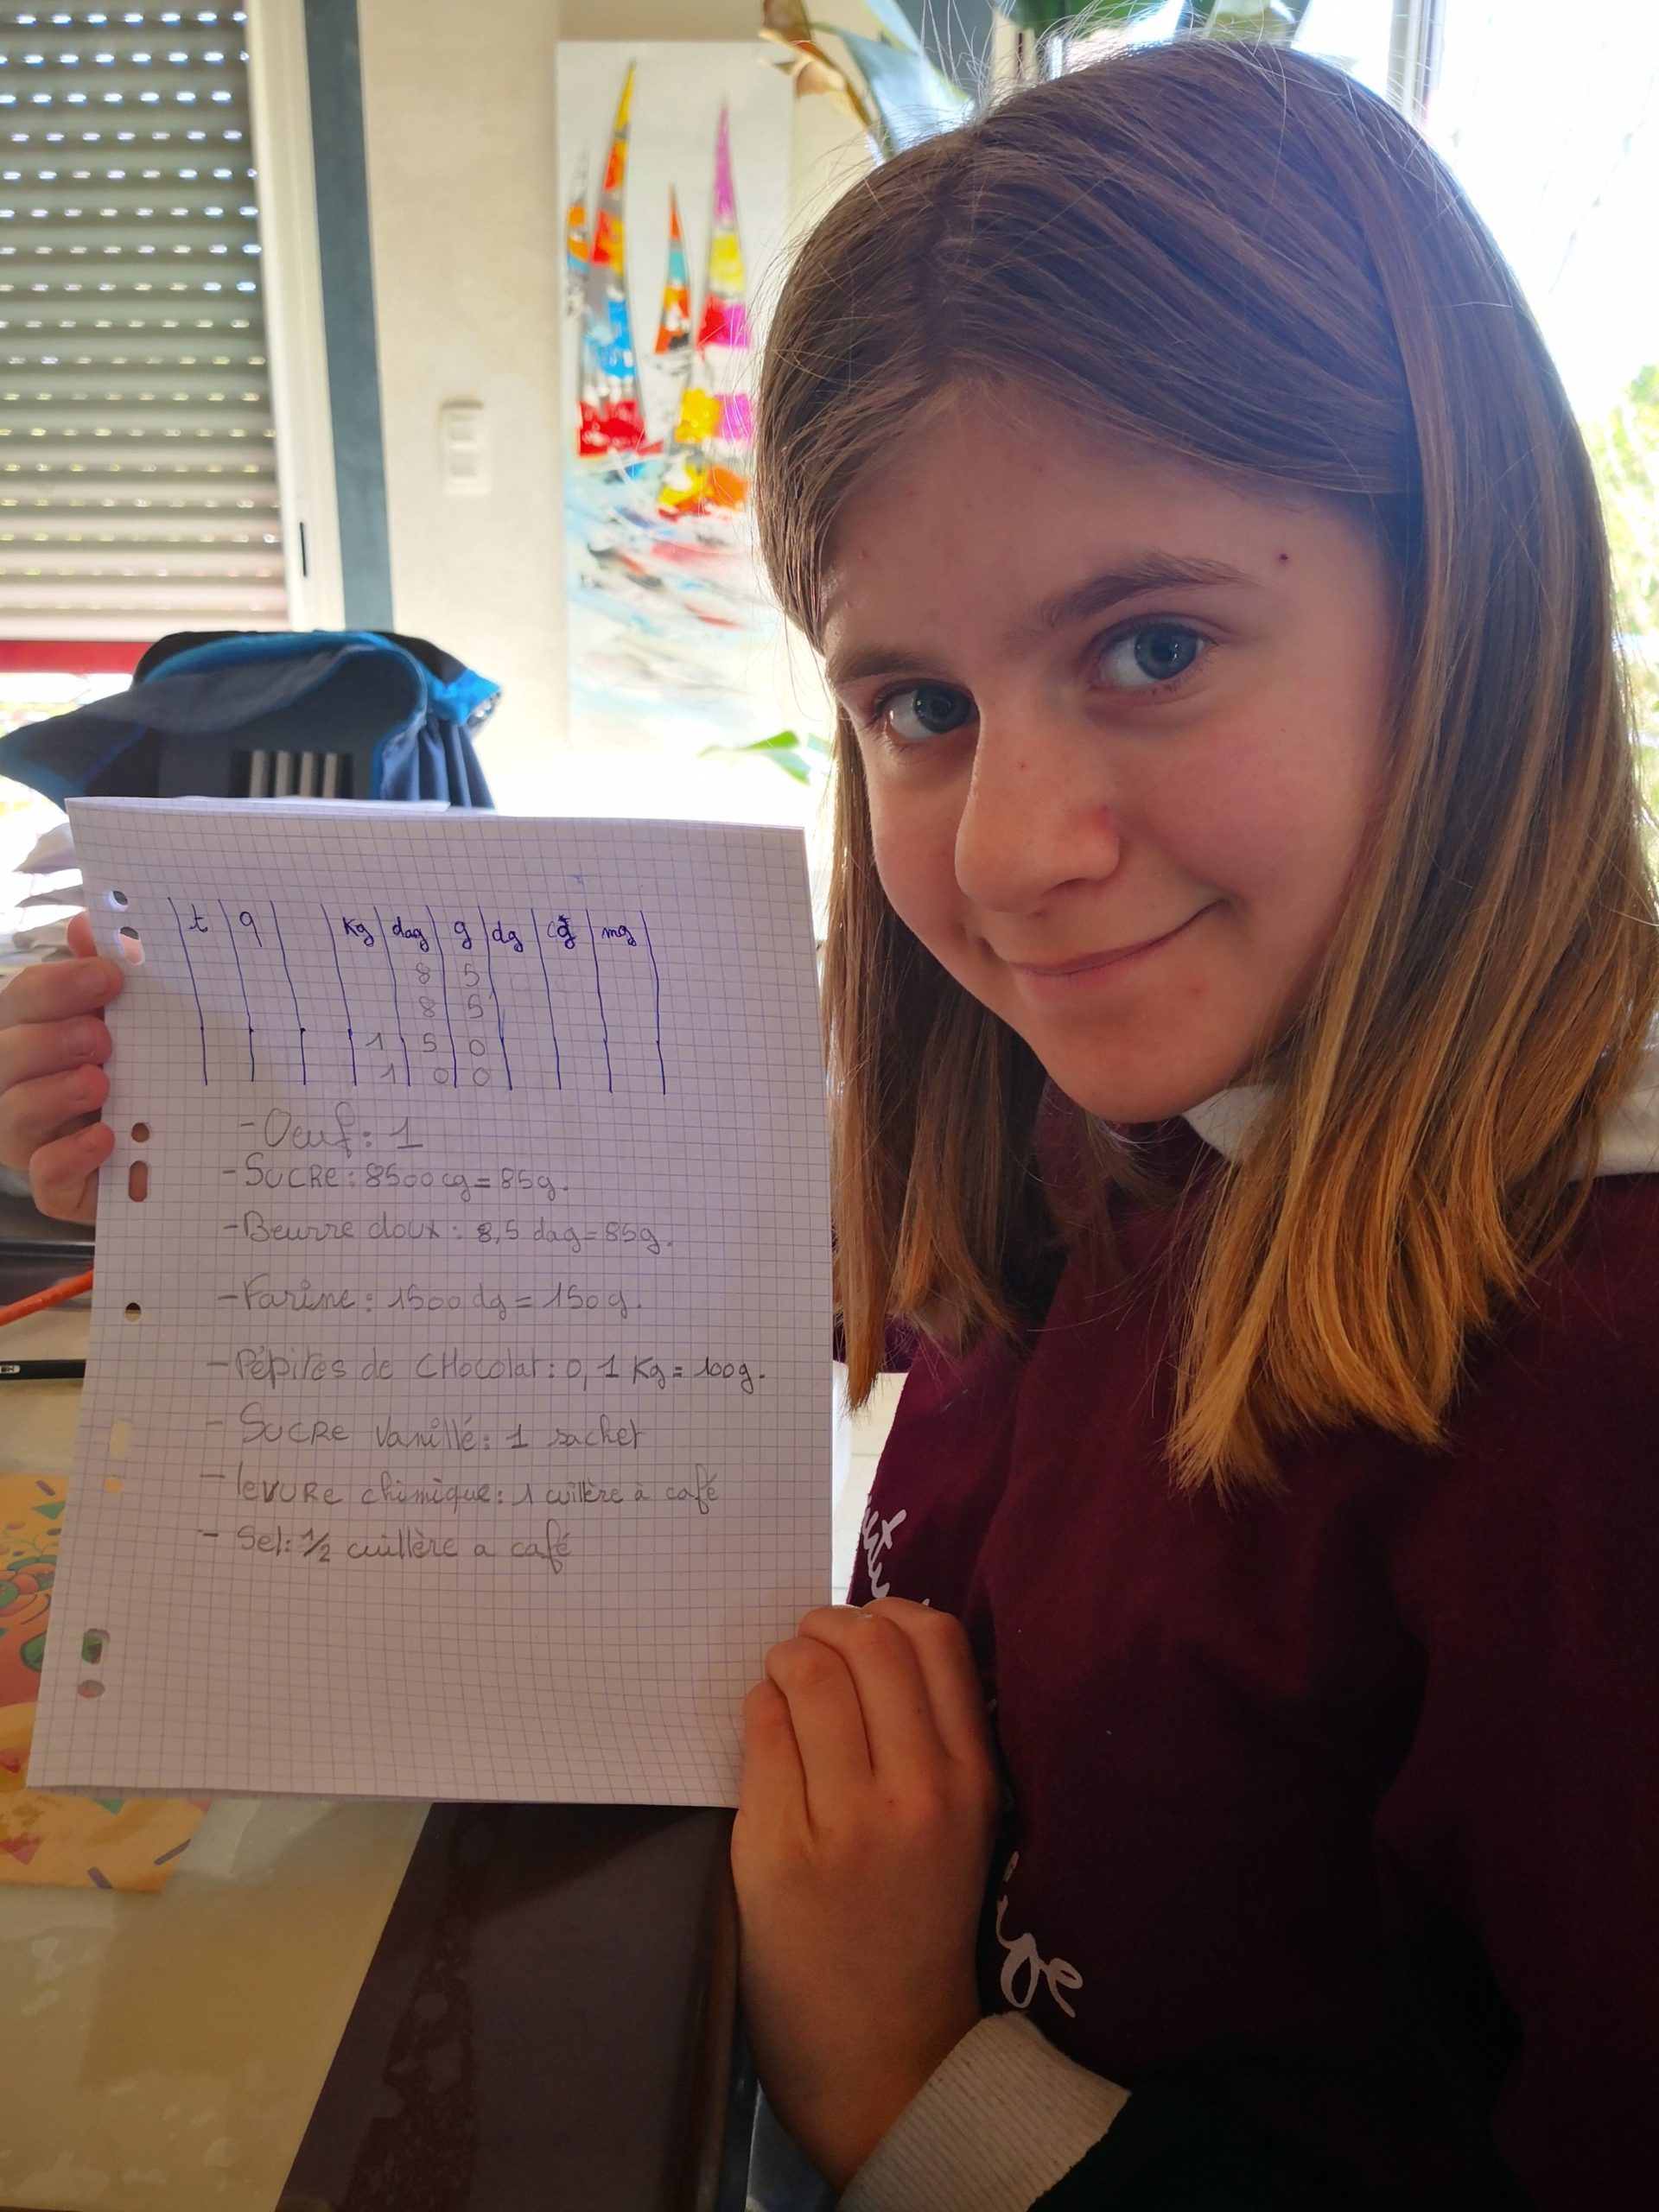 t q Kg dag g dg cg mg
8 5
8 5
1 5 0
1 0 0
- Oeuf : 1
- SUCRE : 8500 cg = 85g.
- Beurre doux : 8,5 dag = 85g.
- Farine : 1500 dg = 150g.
- Pépites de CHocolat : 0,1 Kg = 100g.
- SUCRE Vanillé : 1 sachet
- levURe chimique : 1 cuillère à café
- Sel : 1/2 cuillère a café